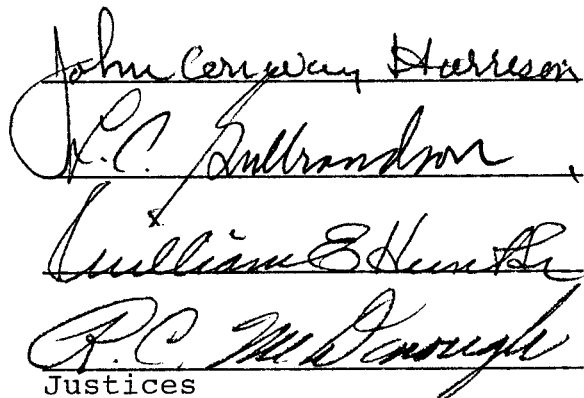 John Conway Harrison
L. C. Gulbrandson
William E Hunt Sr
R. C. McDonough
Justices